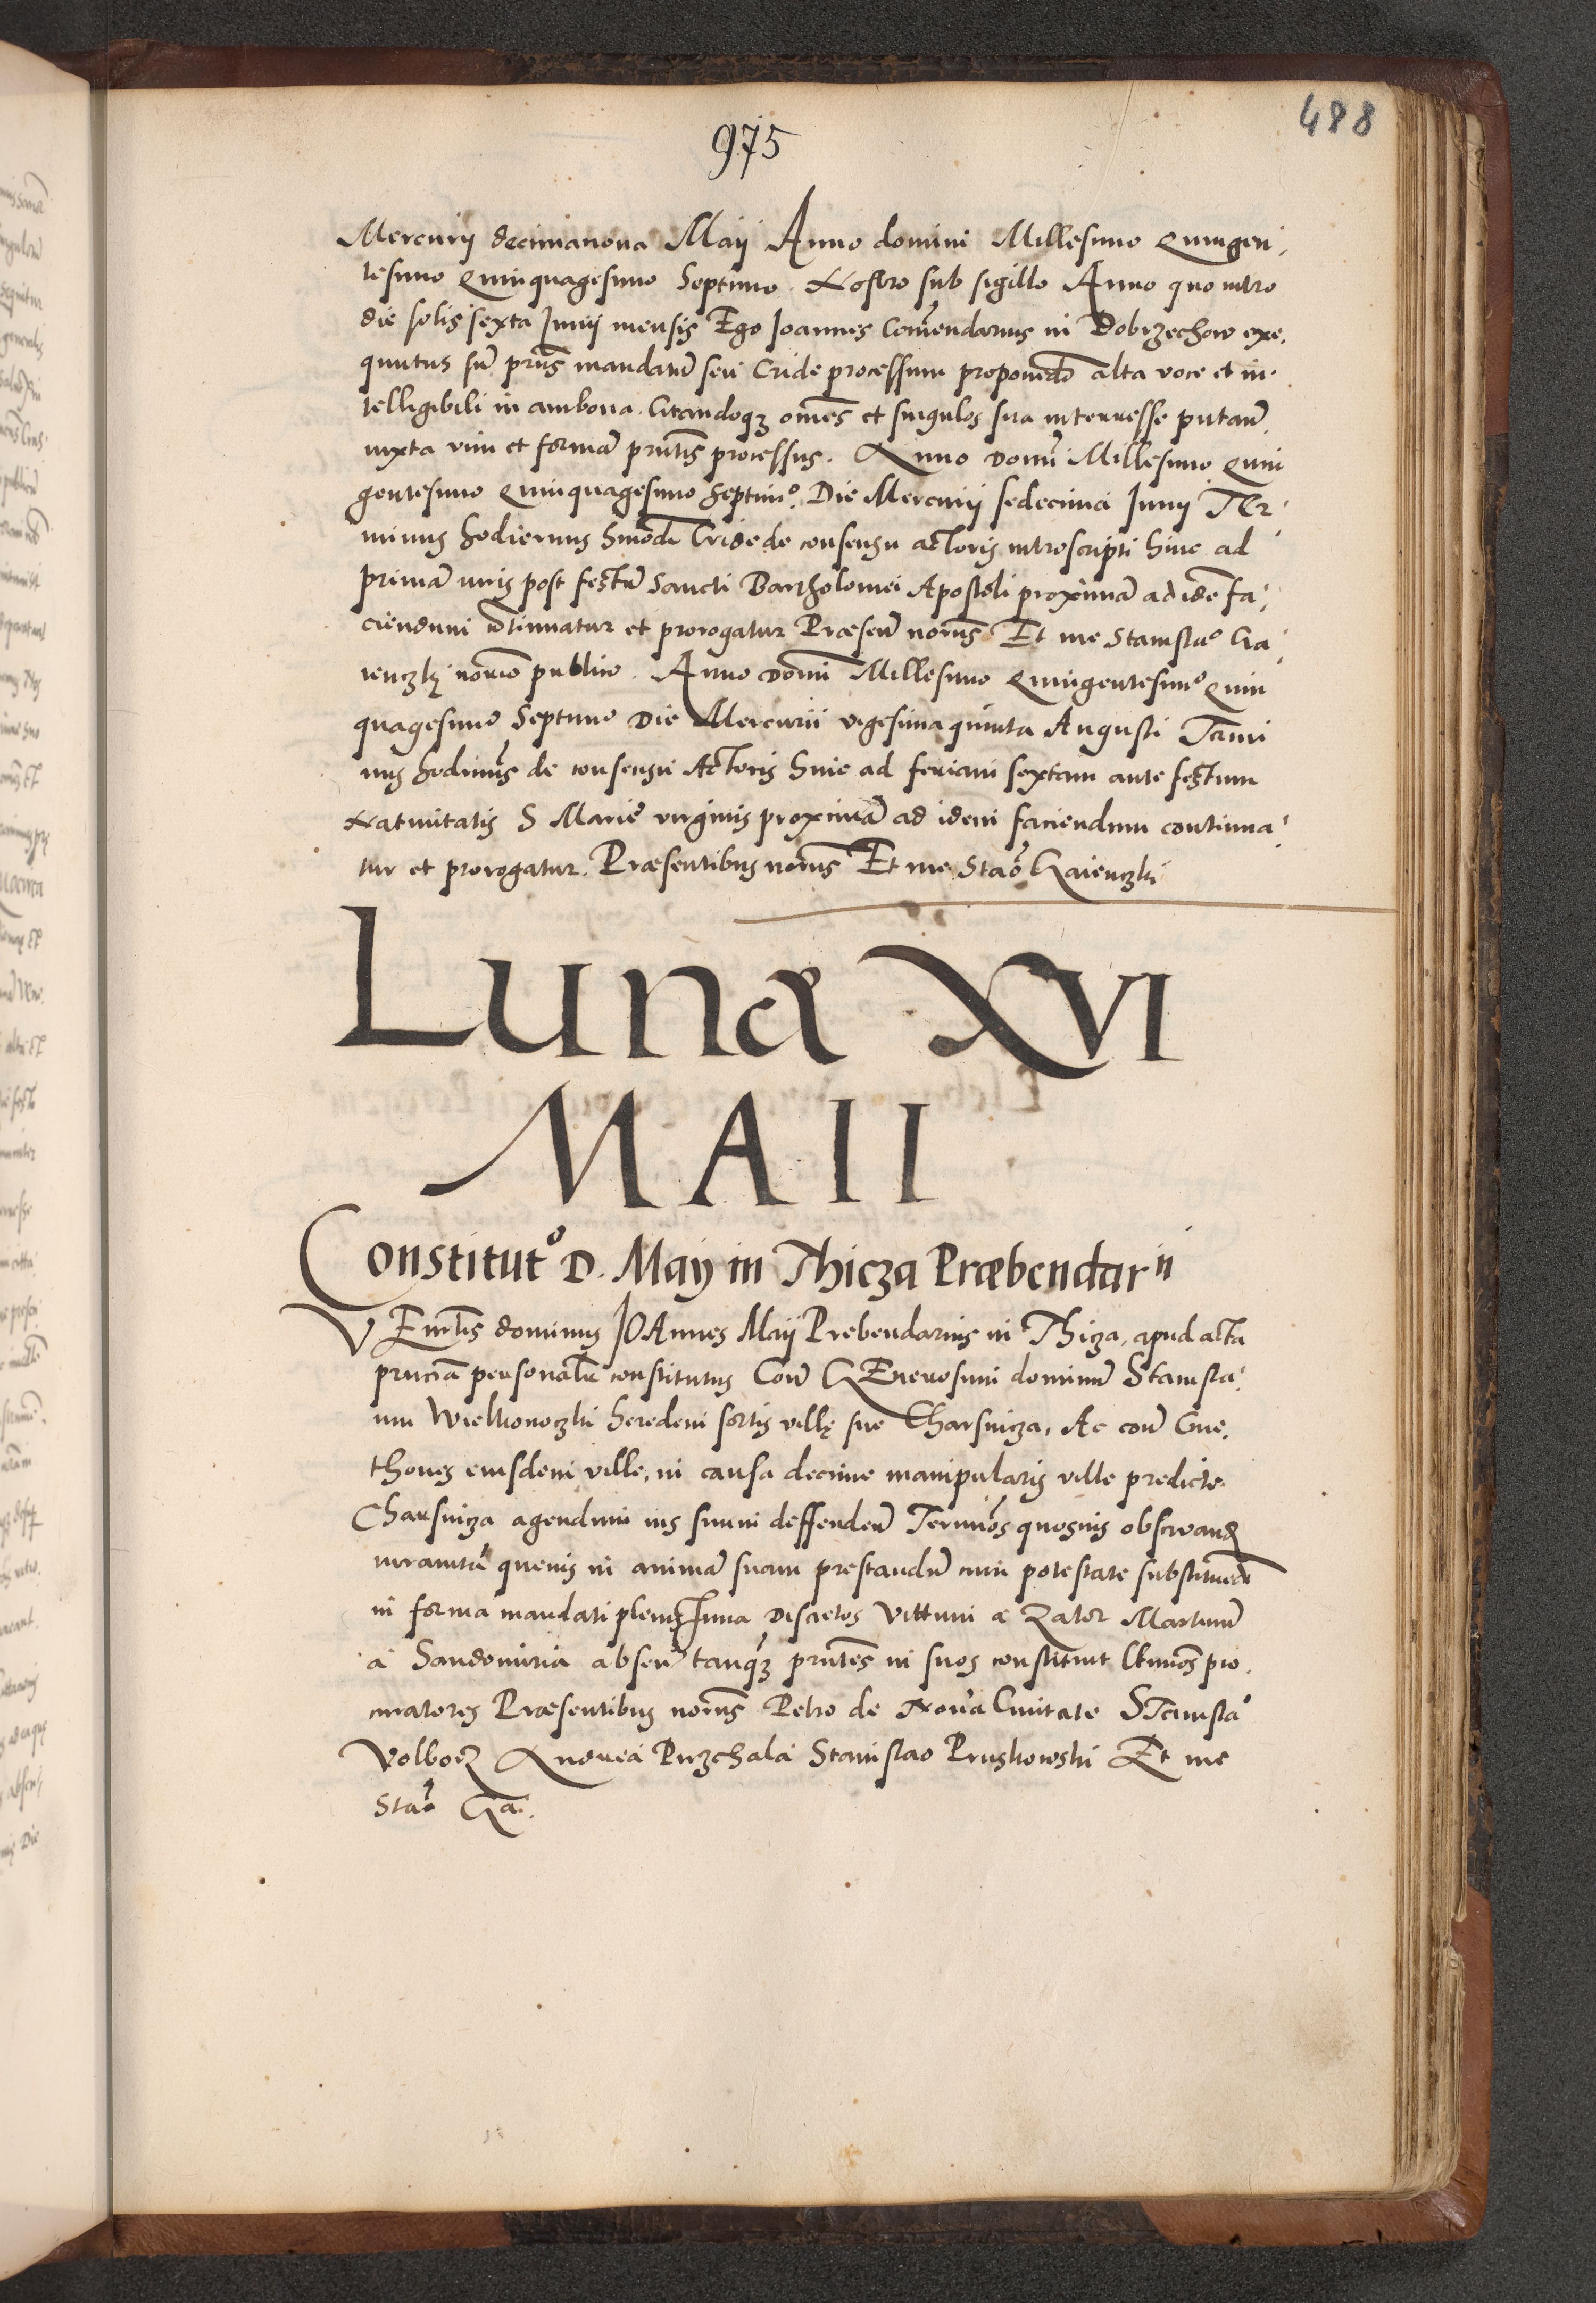 488
975
Mercurij decimanona Maij Anno domini Millesimo Quingen,
tesimo Quinquagesimo Septimo. Nostro sub sigillo Anno quo intro
die solis sexta Junij mensis Ego Joannes Comendarius in Dobrzechow exe,
quutus sum prñs mandatũ seu Cride processum proponendo alta voce et in
telligibili in ambona. Citandoqз omẽs et singulos sua interuesse putañ
iuxta vim et formã prñtis processus. Anno Domi Millesimo Quin
gentesimo Quinquagesimo Septimo. Die Mercurij sedecima Junij Ter
minus hodiernus Cride de consensu actoris introscripti huic ad
primã iuris post festũ Sancti Bartholomei Apostoli proximã ad idẽ fa,
ciendum cõtinuatur et prorogatur Præseñ noñs Et me Stanislao Ga
ienczkj nõrio publico. Anno Domi Millesimo Quingentesimo Quin
quagesimo Septimo Die Mercurii vigesima quinta Augusti Termi
nus hodiernus de consensu Actoris huic ad feriam sextam ante festum
Natiuitatis S Marie virginis proximã ad idem faciendum continua
tur et prorogatur. Præsentibus noñs Et me Stão Gaienczki
Lunæ XVI
MAII
Constitutº D. May in Thicza Præbendarii
VEnerñlis dominus JOAnnes Maij Prebendarius in Thicza, apud acta
prñciã personalr constitutus Coñ GEnerosum dominũ Stanisla
um Wielkonoczki heredem sortis villę sue Charsnicza, Ac coñ Cme,
thones eiusdem ville, in causa decime manipularis ville predicte
Charsnicza agendum ius suum deffendeñ Terminos quosuis obseruand
iuramtũ queuis in animã suam prestandũ cum potestate substituẽdi
in forma mandati pleniss Discretos Vittum a Zator Martinũ
a Sandomiria abseñ tanqз prñtes in suos constituit pro,
curatores Præsentibus noñs Petro de Noua Ciuitate Stanislaº
Volborz Andrea Przchala Stanislao Pruskowski Et me
Stão Ga.